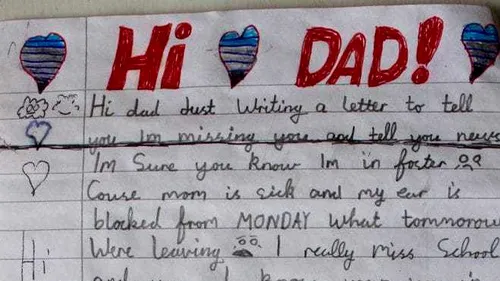 Hi DAD!
Hi dad Just Writing a letter to tell
you Im missing you and tell you news
Im Sure you know Im in foster
Couse mom is sick and my ear is
blocked from MONDAY What tommorow
Were leaving I really miss School
Hi